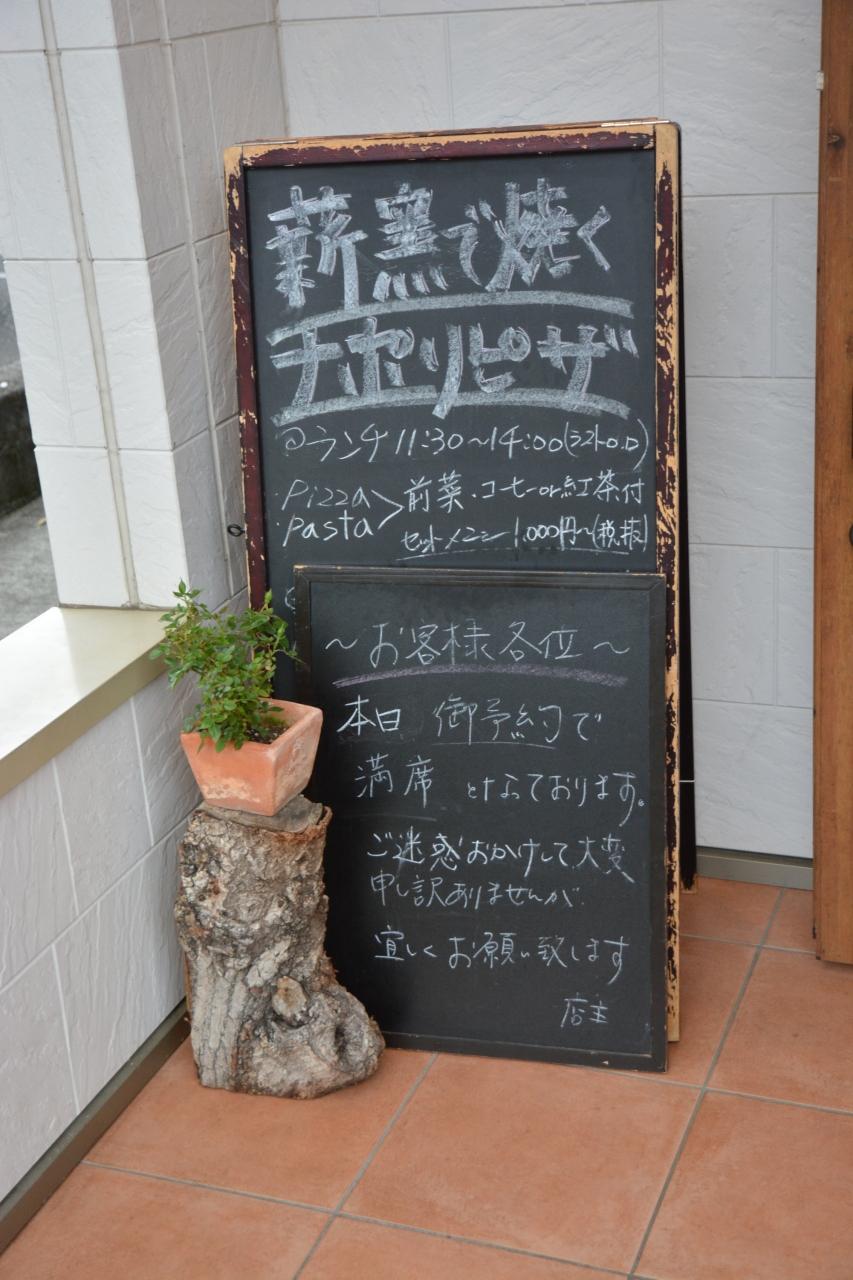 薪窯で焼く
ナポリピザ
◎ランチ 11:30～14:00(ラストO.D)
Pizza
Pasta > 前菜・コーヒーor紅茶付
セットメニュー 1,000円～(税抜)
～お客様各位～
本日 御予約で
満席 となっております。
ご迷惑おかけして大変
申し訳ありませんが
宜しくお願い致します
店主